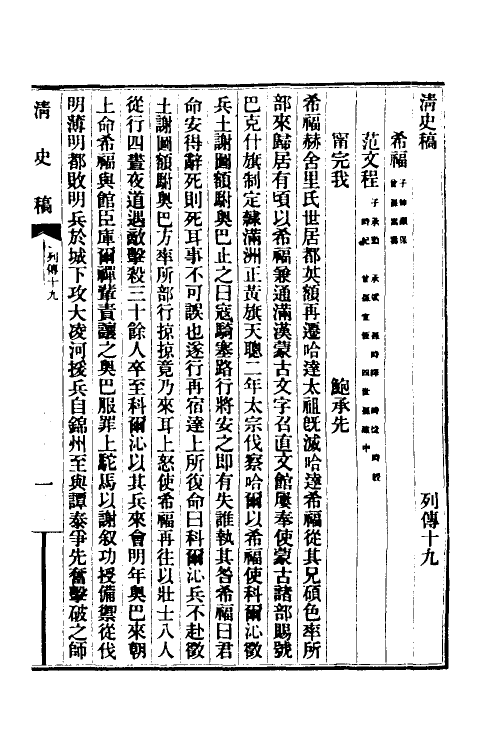 清史稿　列傳十九
希福 子帥顏保 曾孫嵩壽
范文程 子承勳 承斌 孫時繹 時捷 時綬 時紀 曾孫宜恆 四世孫建中
甯完我　鮑承先
希福赫舍里氏世居都英額再遷哈達太祖旣滅哈達希福從其兄碩色率所
部來歸居有頃以希福兼通滿漢蒙古文字召直文館屢奉使蒙古諸部賜號
巴克什旗制定隸滿洲正黃旗天聰二年太宗伐察哈爾以希福使科爾沁徵
兵土謝圖額駙奧巴止之曰寇騎塞路行將安之卽有失誰執其咎希福曰君
命安得辭死則死耳事不可誤也遂行再宿達上所復命曰科爾沁兵不赴徵
土謝圖額駙奧巴方率所部行掠掠竟乃來耳上怒使希福再往以壯士八人
從行四晝夜道遇敵擊殺三十餘人卒至科爾沁以其兵來會明年奧巴來朝
上命希福與館臣庫爾禪輩責讓之奧巴服罪上駝馬以謝敍功授備禦從伐
明薄明都敗明兵於城下攻大凌河援兵自錦州至與譚泰爭先奮擊破之師
清史稿
列傳十九
一